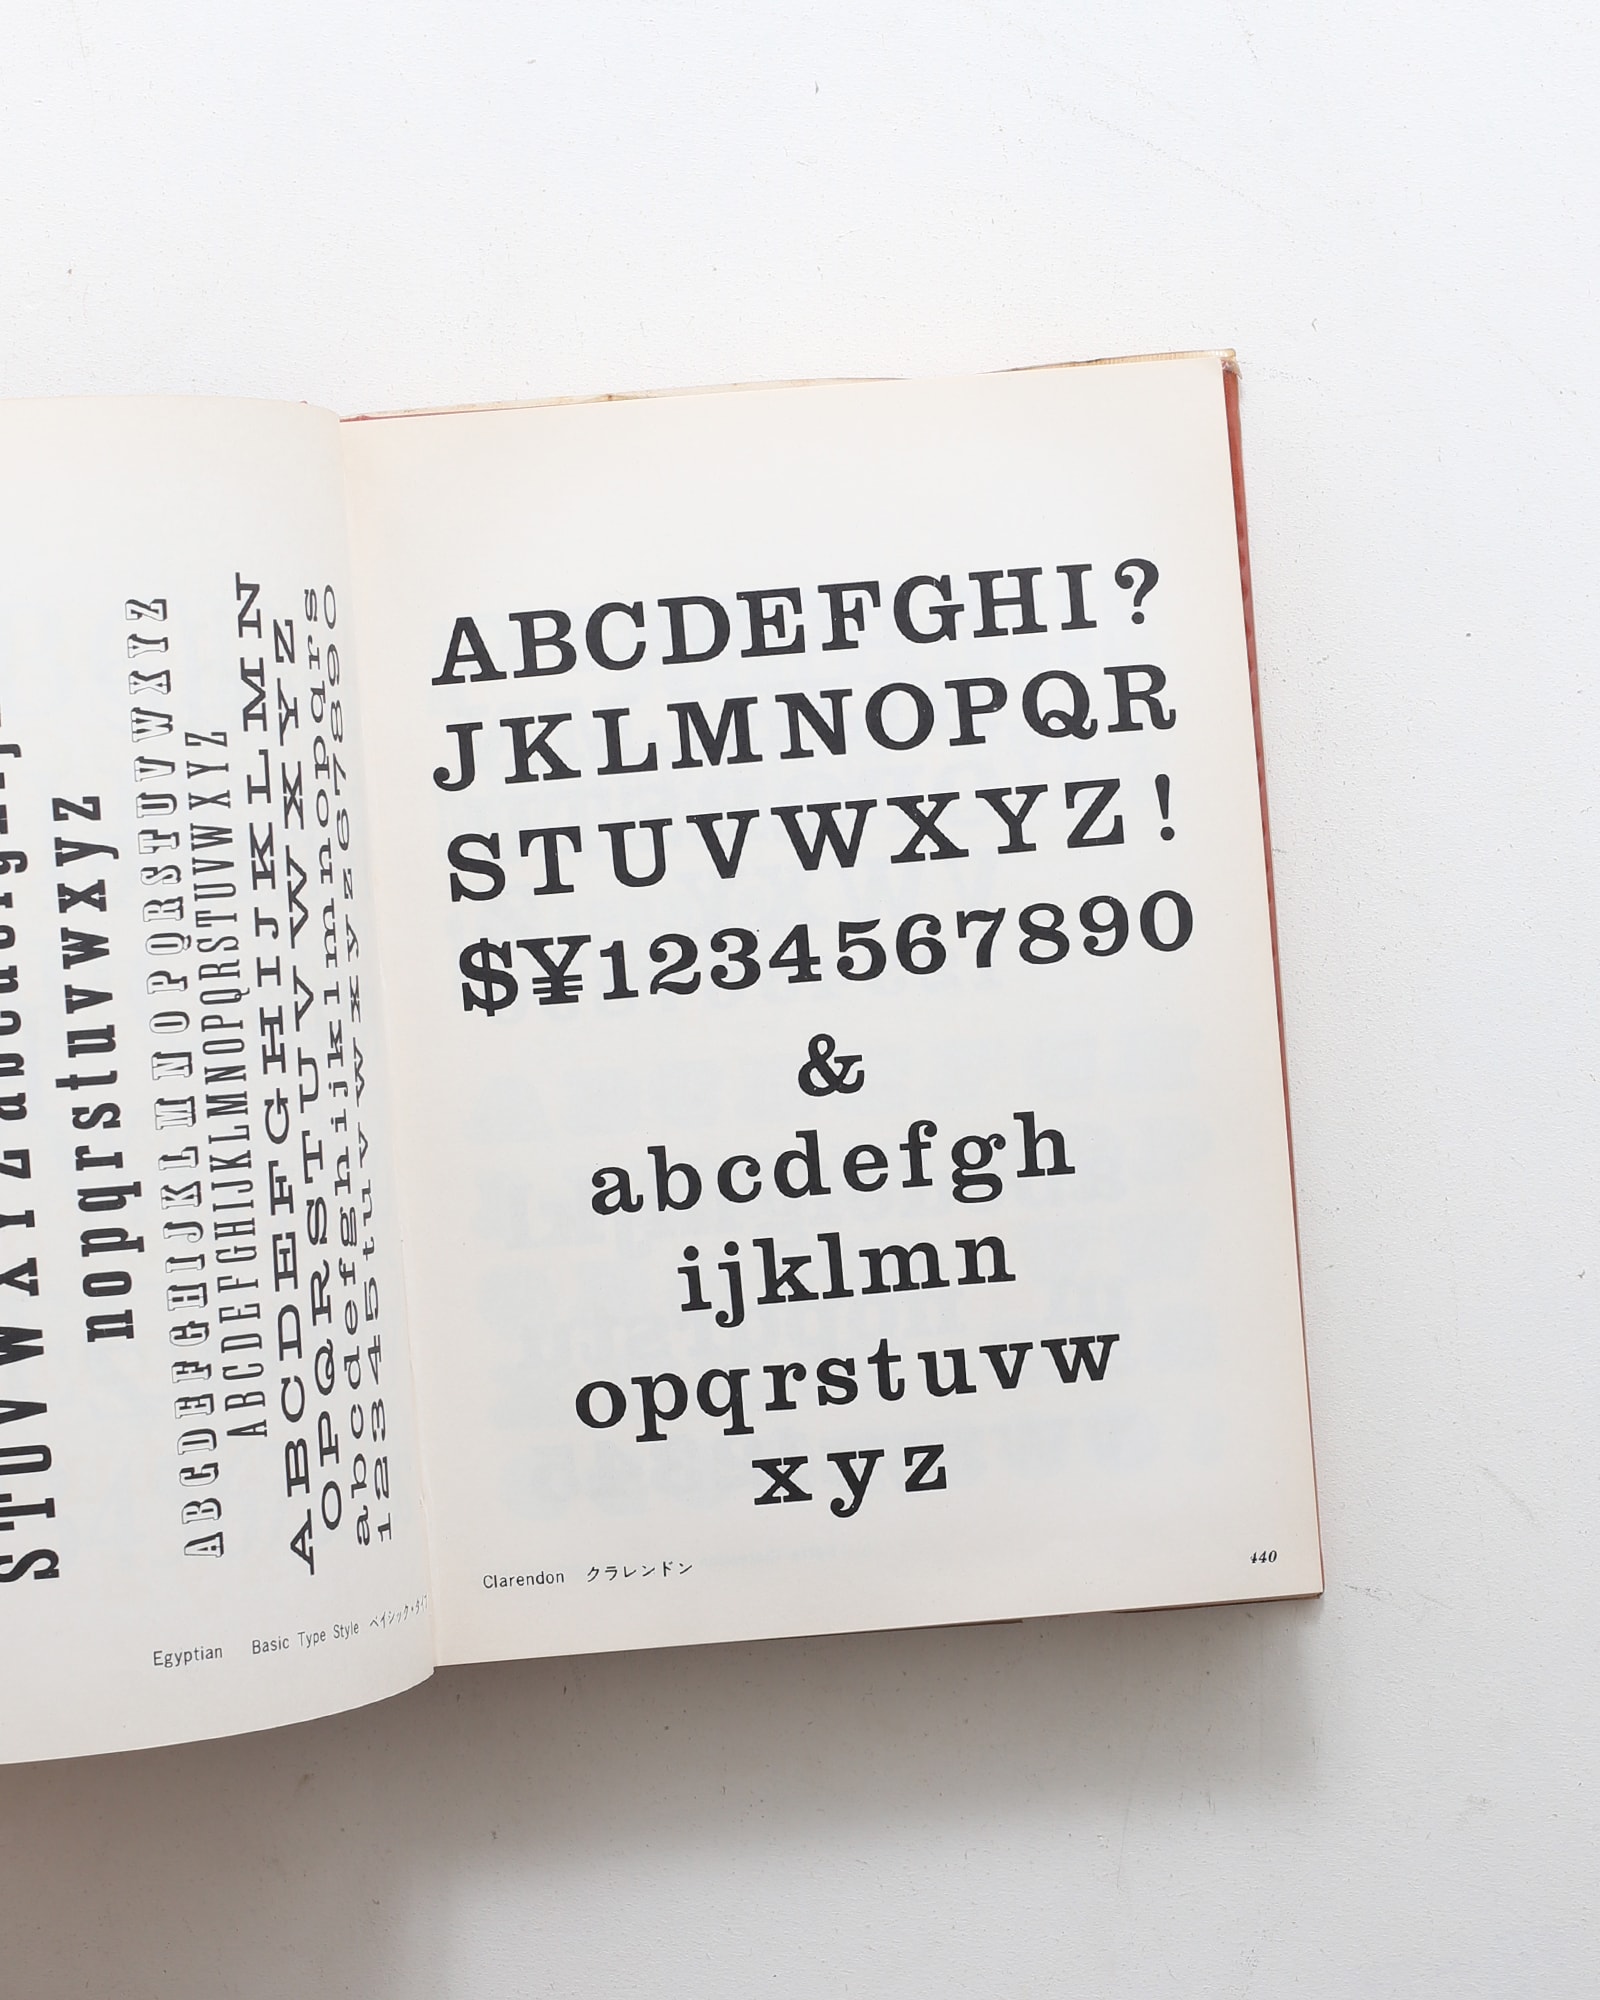 nopqrstuvwxyz
ABCDEFGHIJKLMNOPQRSTUVWXYZ
ABCDEFGHIJKLMNOPQRSTUVWXYZ
ABCDEFGHIJKLMN
OPQRSTUVWXYZ
abcdefghijklmnopqrs
12345tuvwxyz67890
Egyptian Basic Type Style ベイシック・タイプ
ABCDEFGHI?
JKLMNOPQR
STUVWXYZ!
$¥1234567890
&
abcdefgh
ijklmn
opqrstuvw
xyz
Clarendon クラレンドン
440